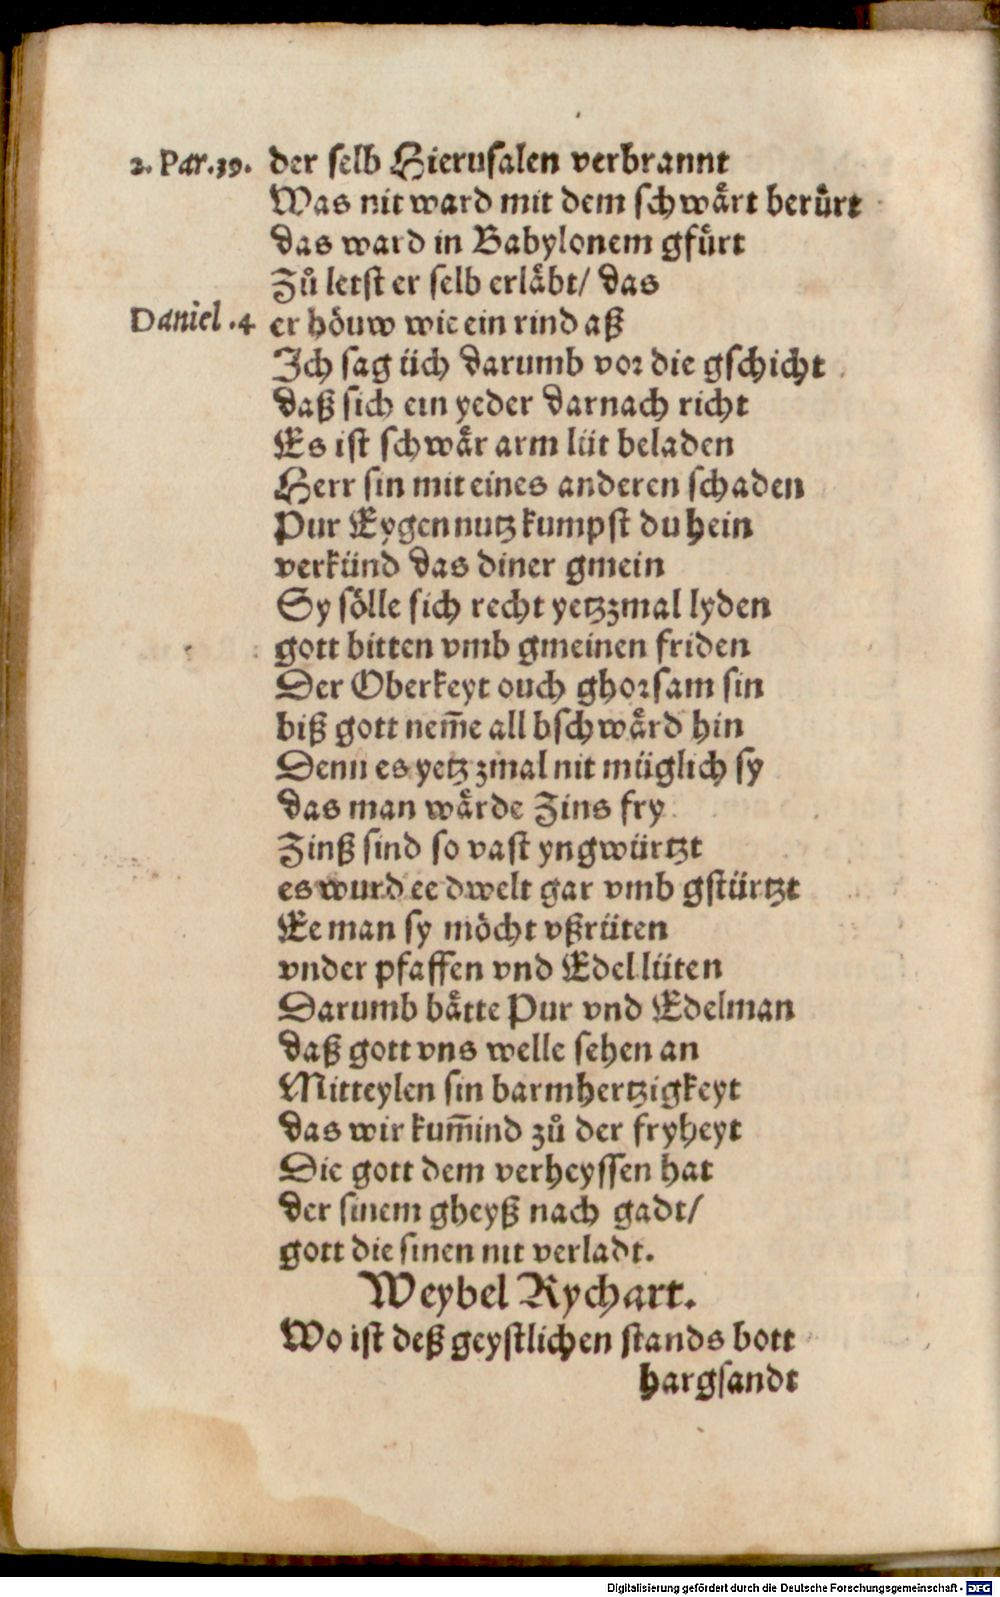 2. Par. 39. der selb Hierusalen verbrannt
Was nit ward mit dem schwaͤrt beruͤrt
das ward in Babylonem gfuͤrt
Zuͦ letst er selb erlaͤbt/ das
Daniel .4 er hoͤuw wie ein rind aß
Ich sag üch darumb vor die gschicht
daß sich ein yeder darnach richt
Es ist schwaͤr arm lüt beladen
Herr sin mit eines anderen schaden
Pur Eygennutz kumpst du hein
verkünd das diner gmein
Sy soͤlle sich recht yetzzmal lyden
gott bitten vmb gmeinen friden
Der Oberkeyt ouch ghorsam sin
biß gott nem̄e all bschwaͤrd hin
Denn es yetz zmal nit müglich sy
das man waͤrde Zins fry
Zinß sind so vast yngwürtzt
es wurd ee dwelt gar vmb gstürtzt
Ee man sy moͤcht vßrüten
vnder pfaffen vnd Edellüten
Darumb baͤtte Pur vnd Edelman
daß gott vns welle sehen an
Mitteylen sin barmhertzigkeyt
das wir kum̄ind zuͦ der fryheyt
Die gott dem verheyssen hat
der sinem gheyß nach gadt/
gott die sinen nit verladt.
Weybel Rychart.
Wo ist deß geystlichen stands bott
hargsandt
Digitalisierung gefördert durch die Deutsche Forschungsgemeinschaft - DFG